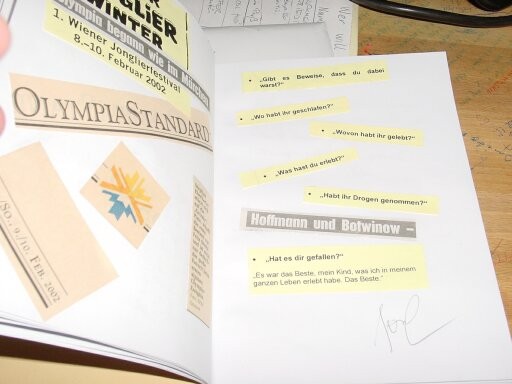 JONGLIER
WINTER
Olympia begann wie im Märchen
1. Wiener Jonglierfestival
8.-10. Februar 2002
OLYMPIASTANDARD
SO., 9./10. FEB. 2002
• „Gibt es Beweise, dass du dabei
warst?"
• „Wo habt ihr geschlafen?"
• „Wovon habt ihr gelebt?"
• „Was hast du erlebt?"
• „Habt ihr Drogen genommen?"
Hoffmann und Botwinow –
• „Hat es dir gefallen?"
„Es war das Beste, mein Kind, was ich in meinem
ganzen Leben erlebt habe. Das Beste."